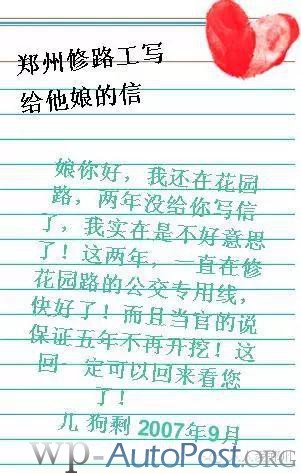 郑州修路工写
给他娘的信
娘你好，我还在花园
路，两年没给你写信
了，我实在是不好意思
了！这两年，一直在修
花园路的公交专用线，
快好了！而且当官的说
保证五年不再升挖！这
回一定可以回来看您
了！
儿 狗剩 2007年9月
wp-AutoPost.ORG